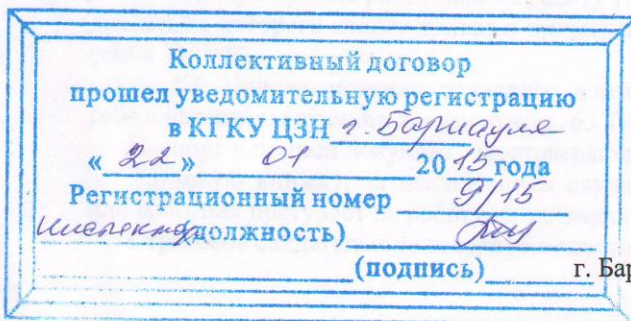 Коллективный договор
прошел уведомительную регистрацию
в КГКУ ЦЗН г. Барнауле
« 22 » 01 2015 года
Регистрационный номер 9/15
инспектор (должность)
(подпись) г. Бар